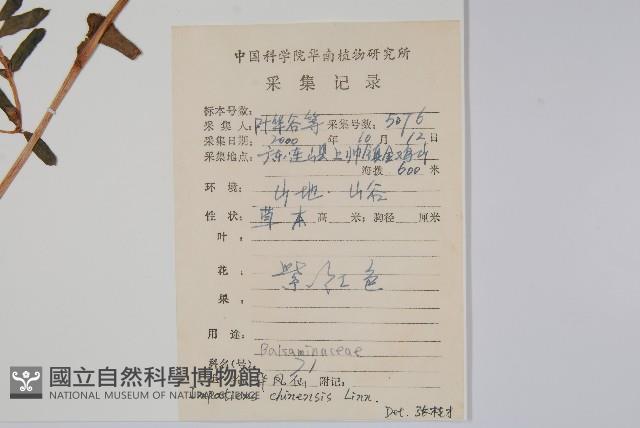 中国科学院华南植物研究所
采集记录
标本号数:
采集人: 叶华谷等 采集号数: 5076
采集日期: 2000 年 10 月 12 日
采集地点: 广东·连山县上帅镇
海拨 600 米
环境: 山地·山谷
性状: 草本 高 米; 胸径 厘米
叶:
花: 紫红色
果:
用途:
Balsaminaceae
科名(号) 71
华凤仙, 附记:
Impatiens chinensis Linn.
Det. 张桂才
國立自然科學博物館
NATIONAL MUSEUM OF NATURAL SCIENCE